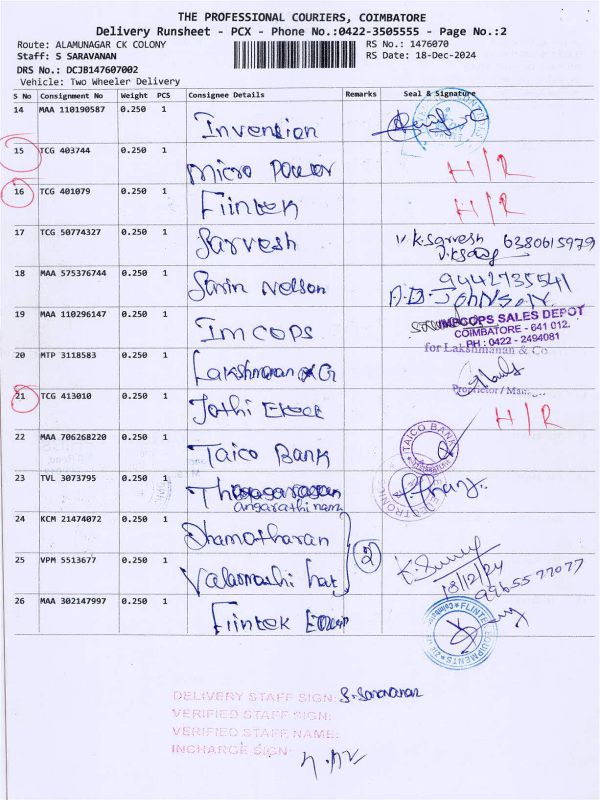 THE PROFESSIONAL COURIERS, COIMBATORE
Delivery Runsheet - PCX - Phone No.:0422-3505555 - Page No.:2
Route: ALAMUNAGAR CK COLONY RS No.: 1476070
Staff: S SARAVANAN RS Date: 18-Dec-2024
DRS No.: DCJB147607002
Vehicle: Two Wheeler Delivery
S No Consignment No Weight PCS Consignee Details Remarks Seal & Signature
14 MAA 110190587 0.250 1 Invention
15 TCG 403744 0.250 1 Micro Power H/R
16 TCG 401079 0.250 1 Flintek H/R
17 TCG 50774327 0.250 1 Sarvesh V.K.Sarvesh 6380615979
18 MAA 575376744 0.250 1 Nelson 9442735541
A.D.JOHNSON
19 MAA 110296147 0.250 1 Imcops IMPCOPS SALES DEPOT
COIMBATORE - 641 012.
PH : 0422 - 2494081
20 MTP 3118583 0.250 1 Lakshmanan & Co for Lakshmanan & Co
Proprietor /
21 TCG 413010 0.250 1 Jothi H/R
22 MAA 706268220 0.250 1 Taico Bank TAICO BANK
23 TVL 3073795 0.250 1
24 KCM 21474072 0.250 1 Dhamotharan
2
18/12/24
25 VPM 5513677 0.250 1 9965577077
26 MAA 302147997 0.250 1 Flintek
DELIVERY STAFF SIGN: S. Saravanan
VERIFIED STAFF SIGN:
VERIFIED STAFF NAME:
INCHARGE SIGN: